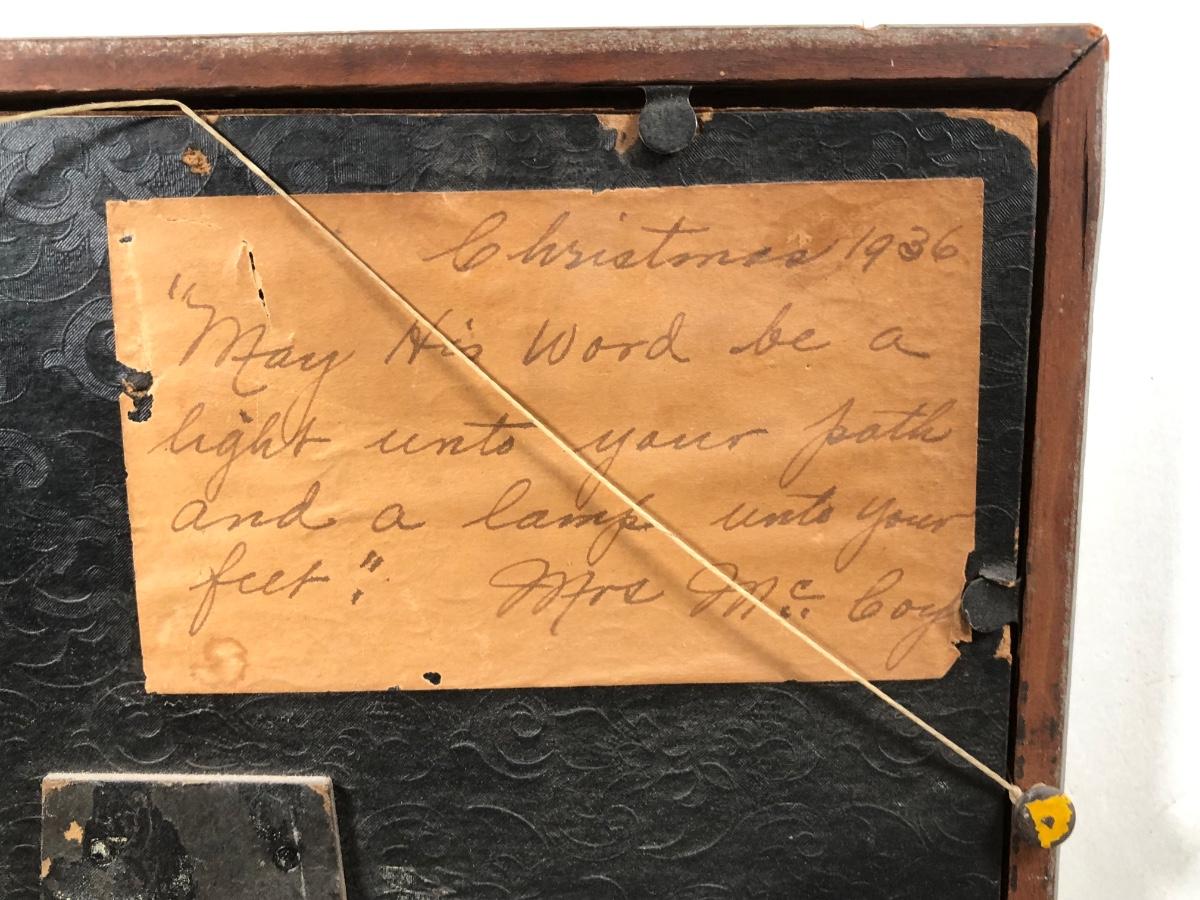 Christmas 1936
"May His Word be a
light unto your path
and a lamp unto your
feet." Mrs Mc Coy